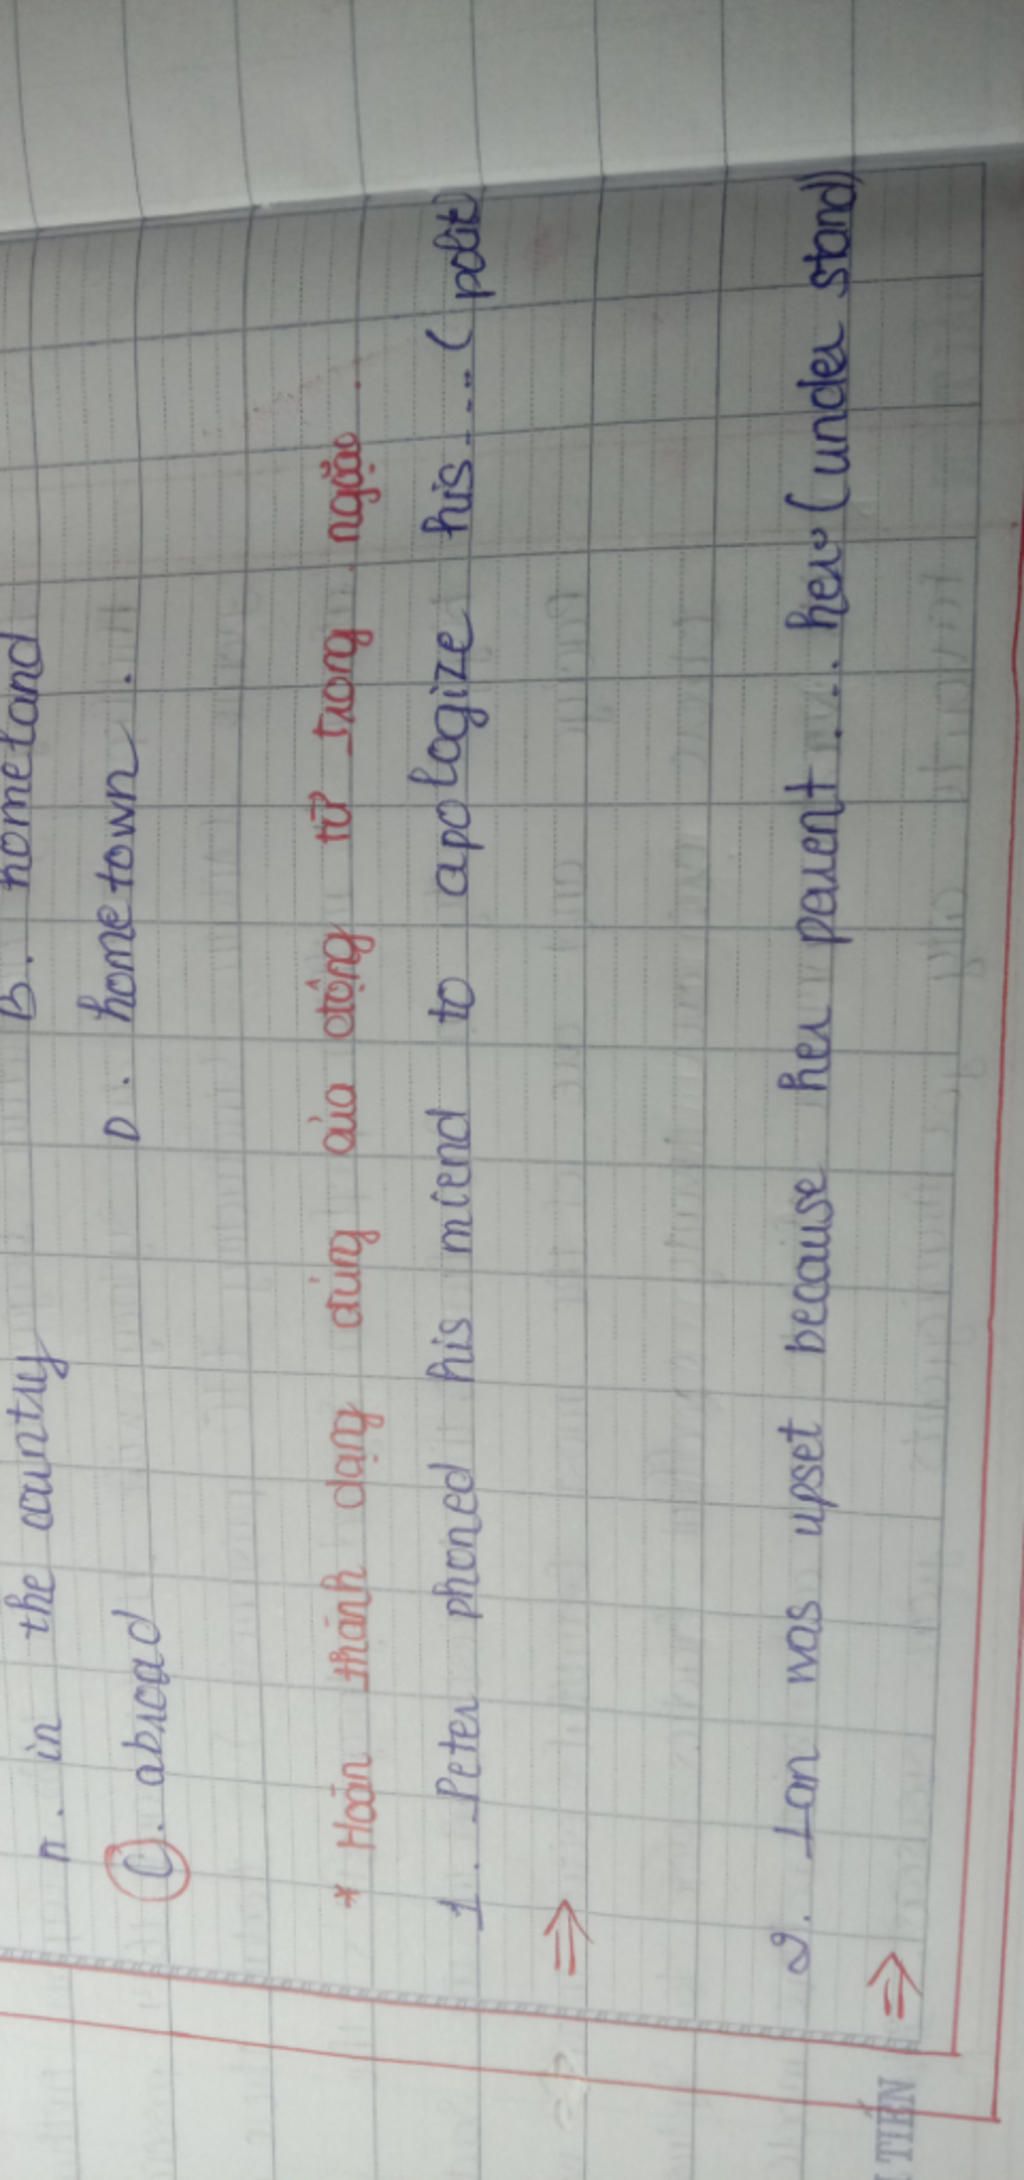 n. in the country B. hometand
C. abroad D. hometown.
* Hoàn thành dạng đúng của động từ trong ngặc.
1. Peter phoned his miend to apologize his.... (polit)
⇒
2. Lan was upset because her parent... her (under stand)
⇒
TIẾN